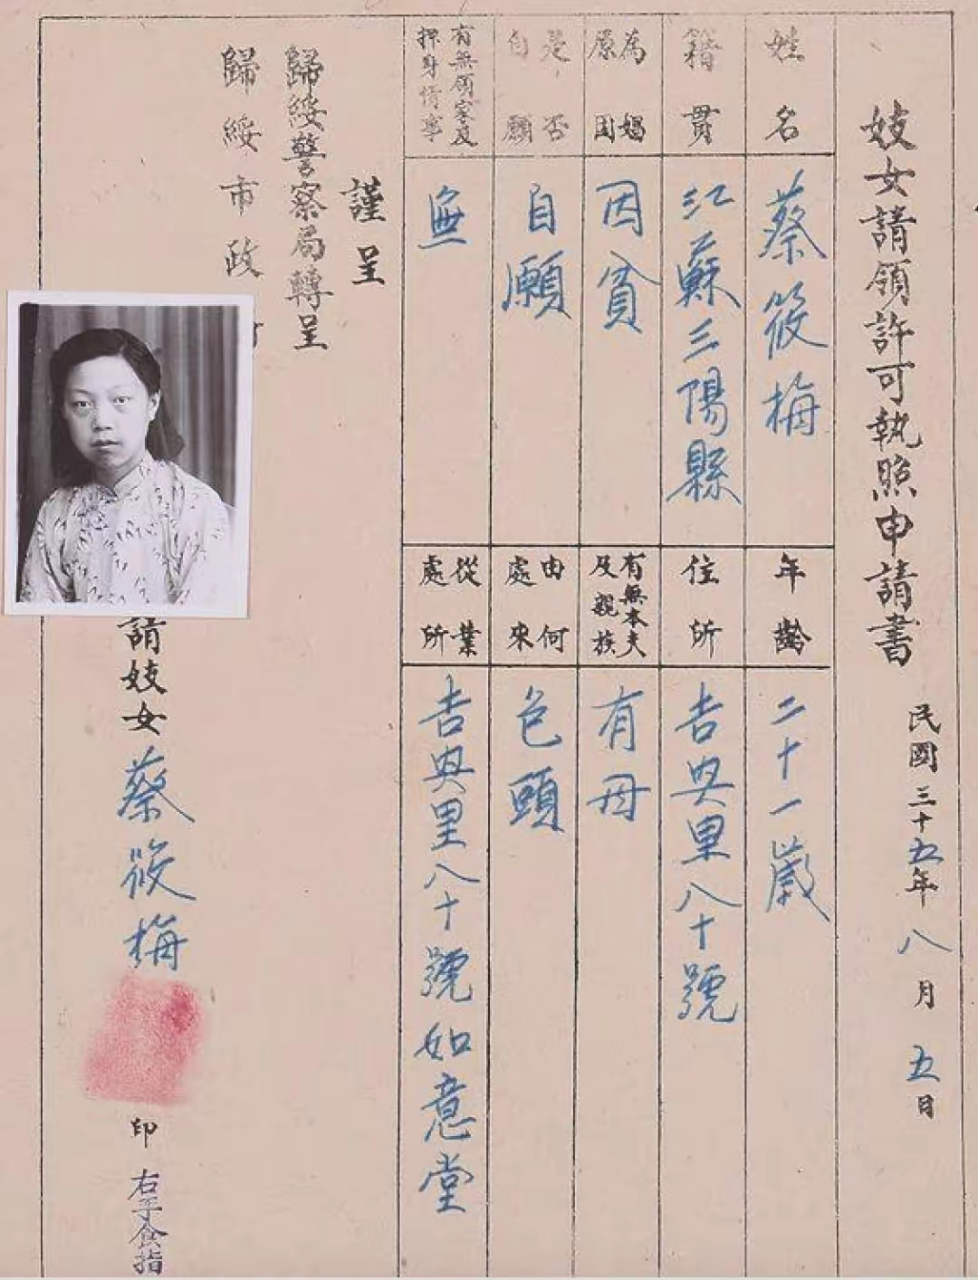 妓女請領許可執照申請書
民國三十五年八月五日
姓名
蔡筱梅
年齡
二十一歲
籍貫
江蘇三陽縣
住所
吉興里八十號
為娼原因
因貧
有無本夫及親族
有母
是否自願
自願
由何處來
包頭
有無領家及押身情事
無
從業處所
吉興里八十號如意堂
謹呈
歸綏警察局轉呈
歸綏市政
請妓女蔡筱梅
印
右手食指